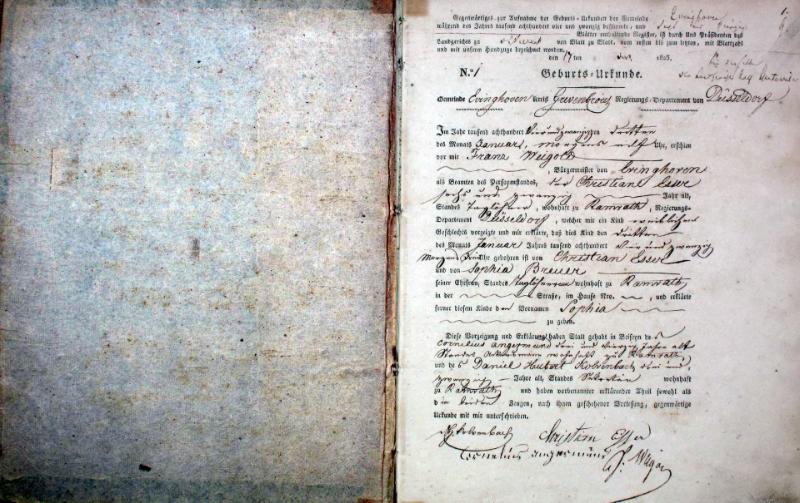 Gegenwärtiges zur Aufnahme der Geburts-Urkunden der Gemeinde Evinghoven
während des Jahrs tausend achthundert vier und zwanzig bestimmte, aus
Blätter enthaltende Register, ist durch Uns Präsidenten des
Landgerichts zu von Blatt zu Blatt, vom ersten bis zum letzten, mit Blattzahl
und mit unserm Handzuge bezeichnet worden.
den 17ten 1823.
N.° 1 Geburts-Urkunde.
Gemeinde Evinghoven Kreis Grevenbroich Regierungs-Departement von Düsseldorf
Im Jahr tausend achthundert vierundzwanzig den dritten
des Monats Januars, morgens elf Uhr, erschien
vor mir Franz Weigold
, Bürgermeister von Evinghoven
als Beamten des Personenstandes, der Christian Esser
sechs und zwanzig Jahre alt,
Standes Taglöhner, wohnhaft zu Ramrath, Regierungs-
Departement Düsseldorf, welcher mir ein Kind weiblichen
Geschlechts vorzeigte und mir erklärte, daß dies Kind den dritten
des Monats Januar Jahres tausend achthundert vier und zwanzig
Morgens Uhr gebohren ist von Christian Esser
und von Sophia Breuer
seiner Ehefrau, Standes Taglöhnerin wohnhaft zu Ramrath
in der Straße, im Hause Nro. , und erklärte
ferner diesem Kinde den Vornamen Sophia
zu geben.
Diese Vorzeigung und Erklärung haben Statt gehabt in Beiseyn des
Cornelius Angermund drei und vierzig Jahre alt
Standes Ackersmann wohnhaft zu Ramrath
und des Daniel Hubert Kolvenbach drei und
zwanzig Jahre alt, Standes Sekretair wohnhaft
zu Ramrath und haben vorbenannter erklärender Theil sowohl als
die beiden Zeugen, nach ihnen geschehener Vorlesung, gegenwärtige
Urkunde mit mir unterschrieben.
Kolvenbach Christian Esser
Cornelius Angermund